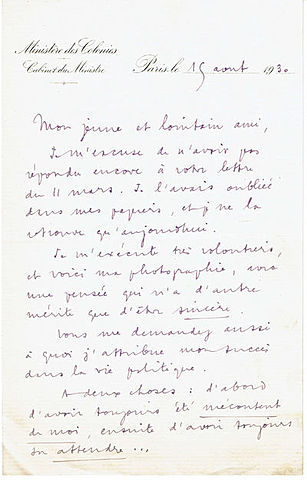 Ministère des Colonies
Cabinet du Ministre
Paris, le 15 aout 1930
Mon jeune et lointain ami,
Je m'excuse de n'avoir pas
répondu encore à votre lettre
du 11 mars. Je l'avais oubliée
dans mes papiers, et je ne la
retrouve qu'aujourd'hui.
Je m'exécute très volontiers,
et voici ma photographie, avec
une pensée qui n'a d'autre
mérite que d'être sincère.
Vous me demandez aussi
à quoi j'attribue mon succès
dans la vie politique.
A deux choses : d'abord
d'avoir toujours été mécontent
de moi, ensuite d'avoir toujours
su attendre...